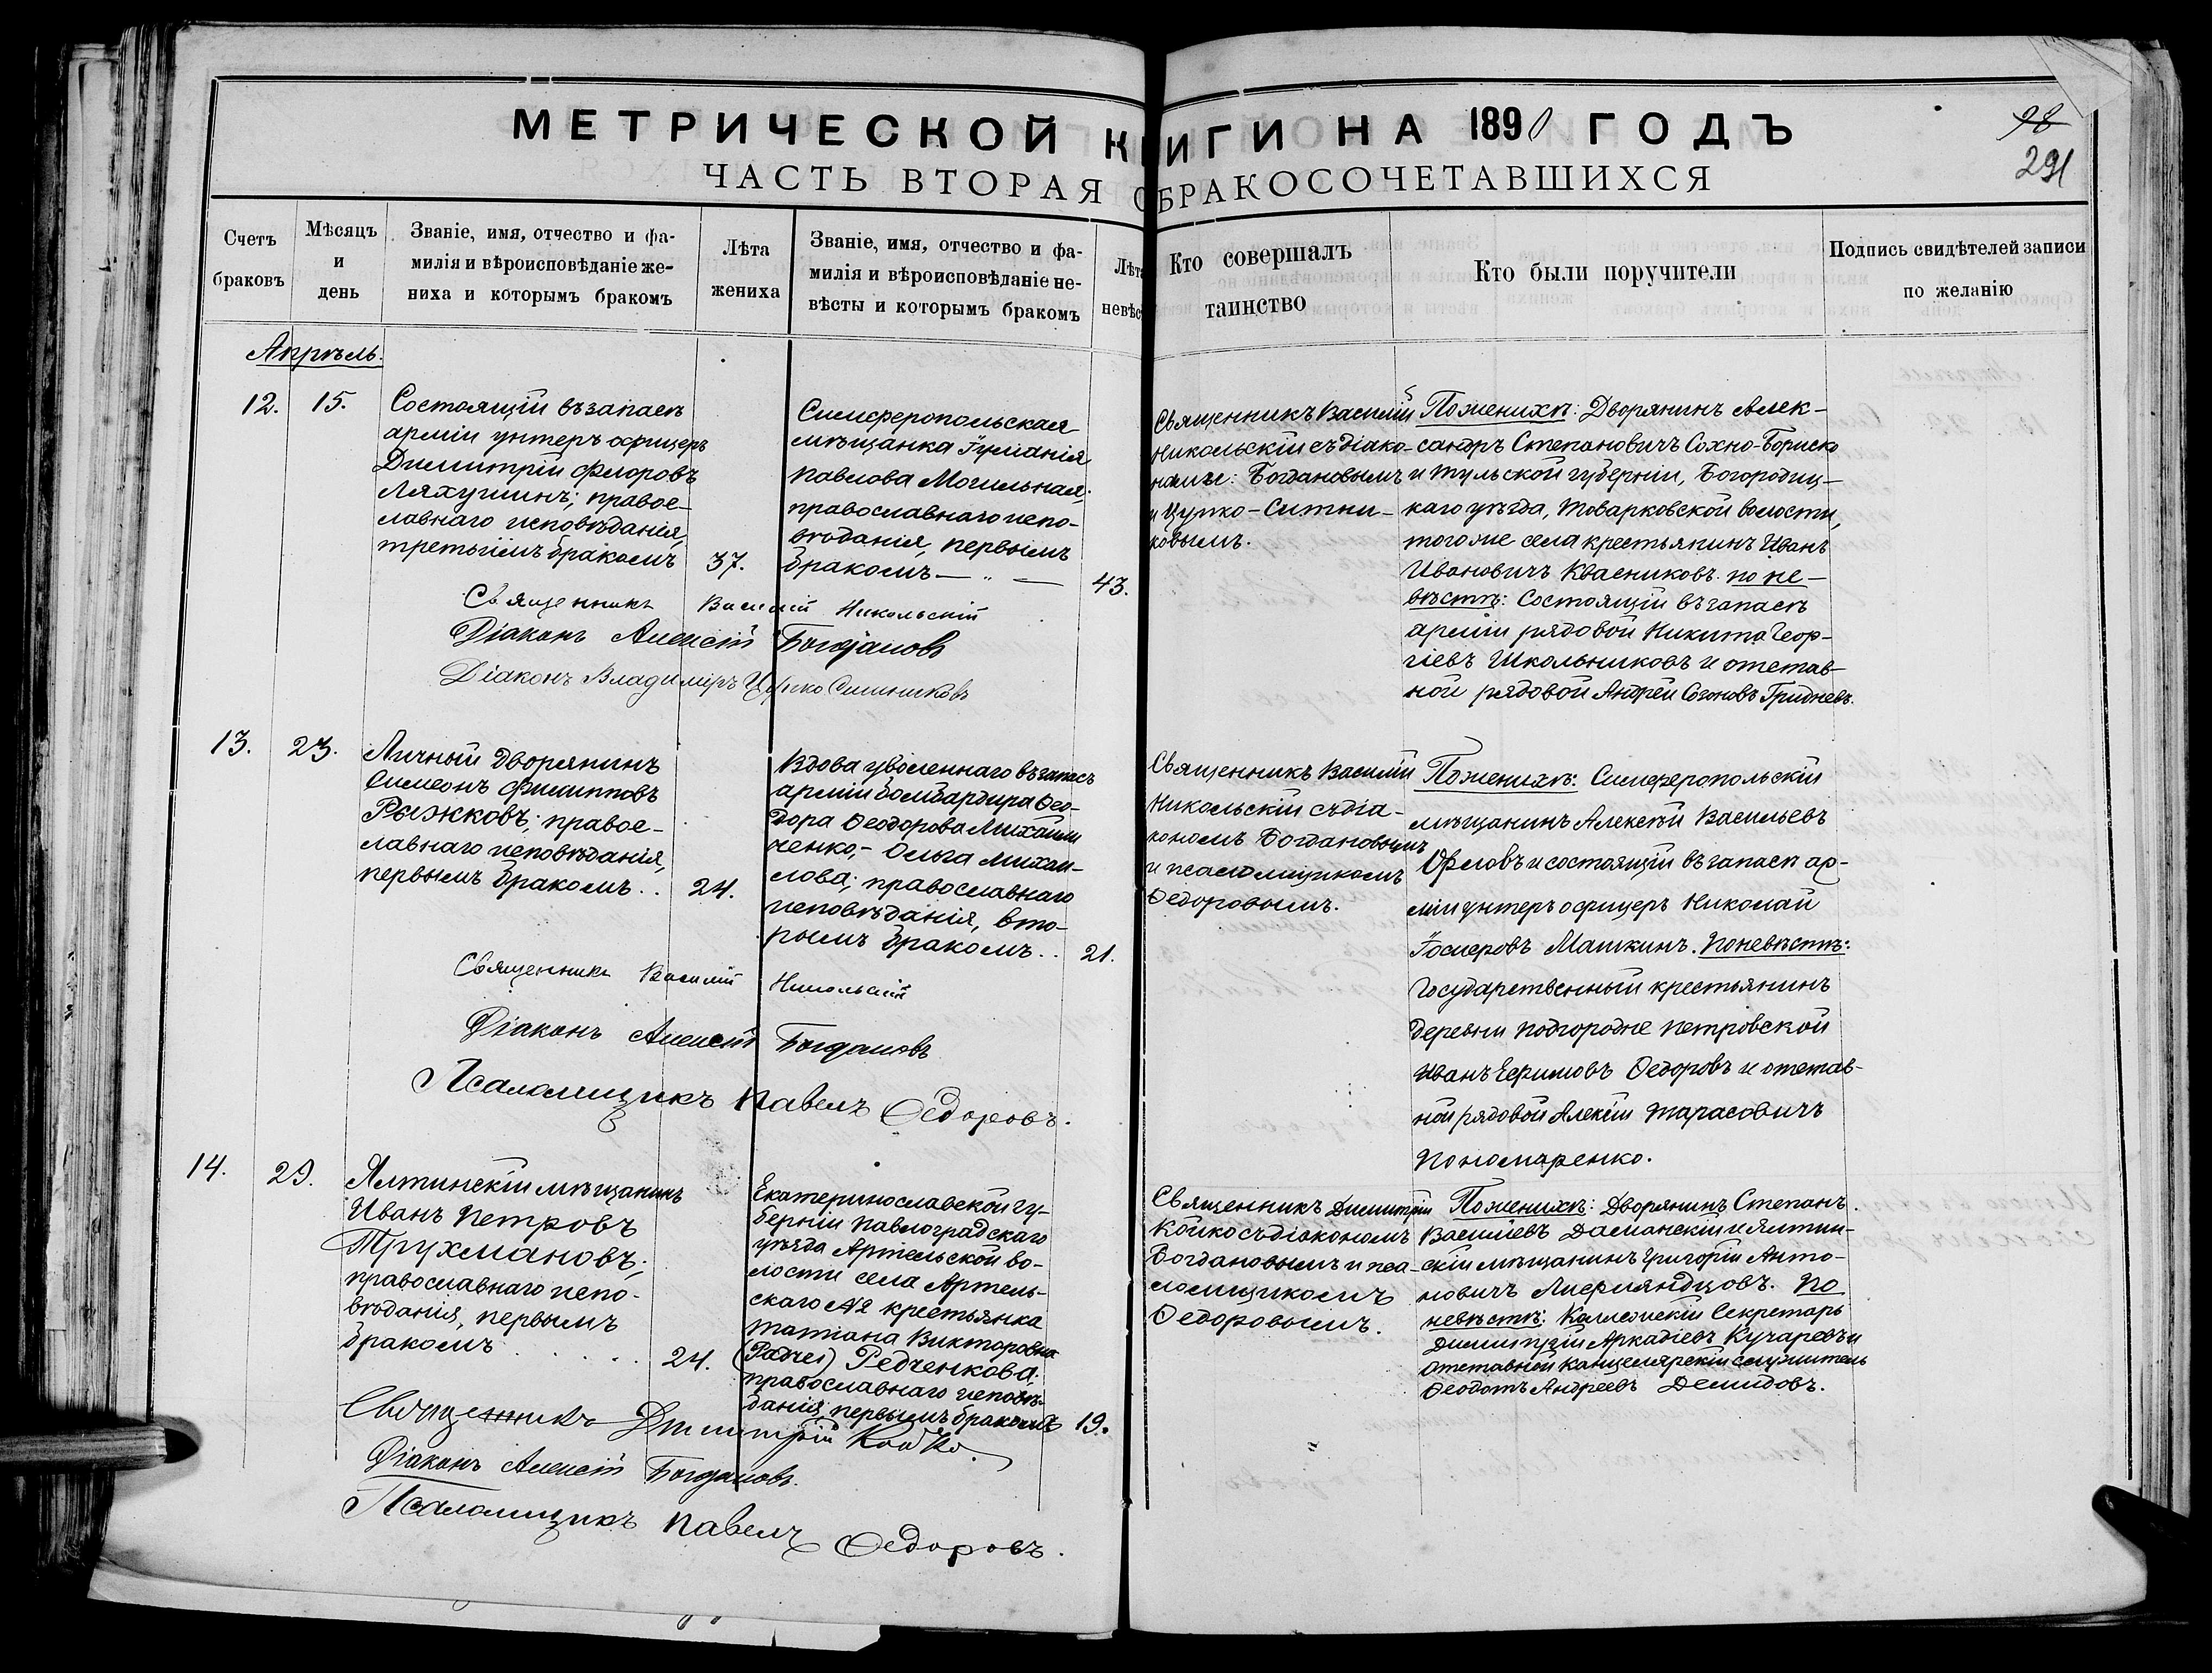 МЕТРИЧЕСКОЙ КНИГИ НА 1890 ГОДЪ
98
291
ЧАСТЬ ВТОРАЯ О БРАКОСОЧЕТАВШИХСЯ
Счетъ
браковъ
Мѣсяцъ
и
день
Званіе, имя, отчество и фа-
милія и вѣроисповѣданіе же-
ниха и которымъ бракомъ
Лѣта
жениха
Званіе, имя, отчество и фа-
милія и вѣроисповѣданіе не-
вѣсты и которымъ бракомъ
Лѣта
невѣс
Кто совершалъ
таинство
Кто были поручители
Подпись свидѣтелей записи
по желанію
Апрѣль.
12.
15.
Состоящій въ запасѣ
арміи унтеръ офицеръ
Димитрій Флоровъ
Ляхушинъ; правос-
лавнаго исповѣданія,
третьимъ бракомъ
37.
Симферопольская
мѣщанка Іуліанія
Павлова Могильная;
православнаго испо-
вѣданія, первымъ
бракомъ — „ —
43.
Священникъ Василій
Никольскій съ діако-
нами: Богдановымъ
и Цупко-Ситни-
ковымъ.
По женихѣ: Дворянинъ Алек-
сандръ Степановичъ Сохно-Бориско
и Тульской губерніи, Богородиц-
каго уѣзда, Товарковской волости,
того же села крестьянинъ Иванъ
Ивановичъ Квасниковъ. по не-
вѣстѣ: Состоящій въ запасѣ
арміи рядовой Никита Геор-
гіевъ Школьниковъ и отстав-
ной рядовой Андрей Созоновъ Гридневъ.
Священникъ Василій Никольскій
Діаконъ Алексій Богдановъ
Діаконъ Владиміръ Цупко Ситниковъ
13.
23.
Личный Дворянинъ
Симеонъ Филипповъ
Рыжковъ; правос-
лавнаго исповѣданія,
первымъ бракомъ..
24.
Вдова уволеннаго въ запасъ
арміи бомбардира Ѳео-
дора Ѳеодорова Михайли
ченко,- Ольга Михаи-
лова; православнаго
исповѣданія, вто-
рымъ бракомъ..
21.
Священникъ Василій
Никольскій съ діа-
кономъ Богдановымъ
и псаломщикомъ
Ѳедоровымъ.
По женихѣ: Симферопольскій
мѣщанинъ Алексѣй Васильевъ
Орловъ и состоящій въ запасѣ ар-
міи унтеръ офицеръ Николай
Машкинъ. По невѣстѣ:
Государственный крестьянинъ
деревни Подгородне Петровской
Иванъ Ефимовъ Ѳедоровъ и отстав-
ной рядовой Алексѣй Тарасовичъ
Пономаренко.
Священникъ Василій Никольскій
Діаконъ Алексій Богдановъ
Псаломщикъ Павелъ Ѳедоровъ.
14.
29.
Ялтинскій мѣщанинъ
Иванъ Петровъ
Трухмановъ;
православнаго испо-
вѣданія, первымъ
бракомъ . . . . . .
24.
Екатеринославской гу-
берніи Павлоградскаго
уѣзда Артельской во-
лости села Артель-
скаго № 2 крестьянка
Татіана Викторовна
(Радчен) Редченкова;
православнаго исповѣ-
данія, первымъ бракомъ
19.
Священникъ Димитрій
Койко съ діакономъ
Богдановымъ и пса-
ломщикомъ
Ѳедоровымъ.
По женихѣ: Дворянинъ Степанъ
Василіевъ Даманскій и Ялтин-
скій мѣщанинъ Григорій Анто-
новичъ Лифляндцовъ. По
невѣстѣ: Коллежскій Секретарь
Димитрій Аркадіевъ Кучаревъ и
отставной канцелярскій служитель
Ѳеодотъ Андреевъ Демидовъ.
Священникъ Димитрій Койко
Діаконъ Алексій Богдановъ.
Псаломщикъ Павелъ Ѳедоровъ.